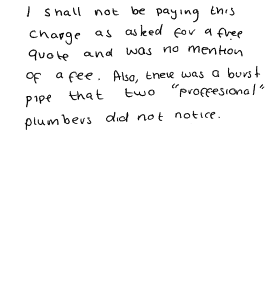 I shall not be paying this
charge as asked for a free
quote and was no mention
of a fee. Also, there was a burst
pipe that two "proffesional"
plumbers did not notice.